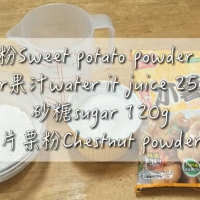 粉Sweet potato powder
r果汁water it juice 25
砂糖sugar 120g
片栗粉Chestnut powder